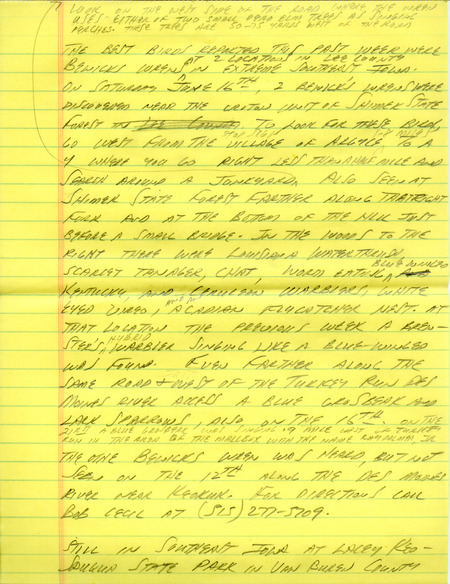 Look on the west side of the road where the wren
uses either of two small dead elm trees as singing
perches. These trees are 50-75 yards west of the road
The best birds reported this past week were
Bewick's Wrens at 2 locations in Lee County in extreme southeast Iowa.
On Saturday June 16th, 2 Bewick's Wrens were
discovered near the Croton Unit of Shimek State
Forest in Lee County. To look for these birds,
go west from the village of Argyle to a
Y where you go right less than a half mile and
search around a junkyard. Also seen at
Shimek State Forest farther along that right
fork and at the bottom of the hill just
before a small bridge. In the woods to the
right there were Louisiana Waterthrush,
Scarlet Tanager, Chat, Worm eating, Blue-winged
Kentucky, and Cerulean Warblers, White
eyed Vireo, Acadian Flycatcher nest. At
that location the previous week a Brew-
ster's hybrid Warbler singing like a Blue-winged
was found. Even farther along the
same road + west of the Turkey Run Des
Moines River Access a Blue Grosbeak and
Lark Sparrows, also on the 16th. On the
a Blue Grosbeak was singing .9 mile west of Turkey
Run in the area of the mailbox with the name
The other Bewick's Wren was heard, but not
seen on the 12th along the Des Moines
River near Keokuk. For directions call
Bob Cecil at (515) 277-5709.
Still in Southeast Iowa at Lacey Keo-
sauqua State Park in Van Buren County